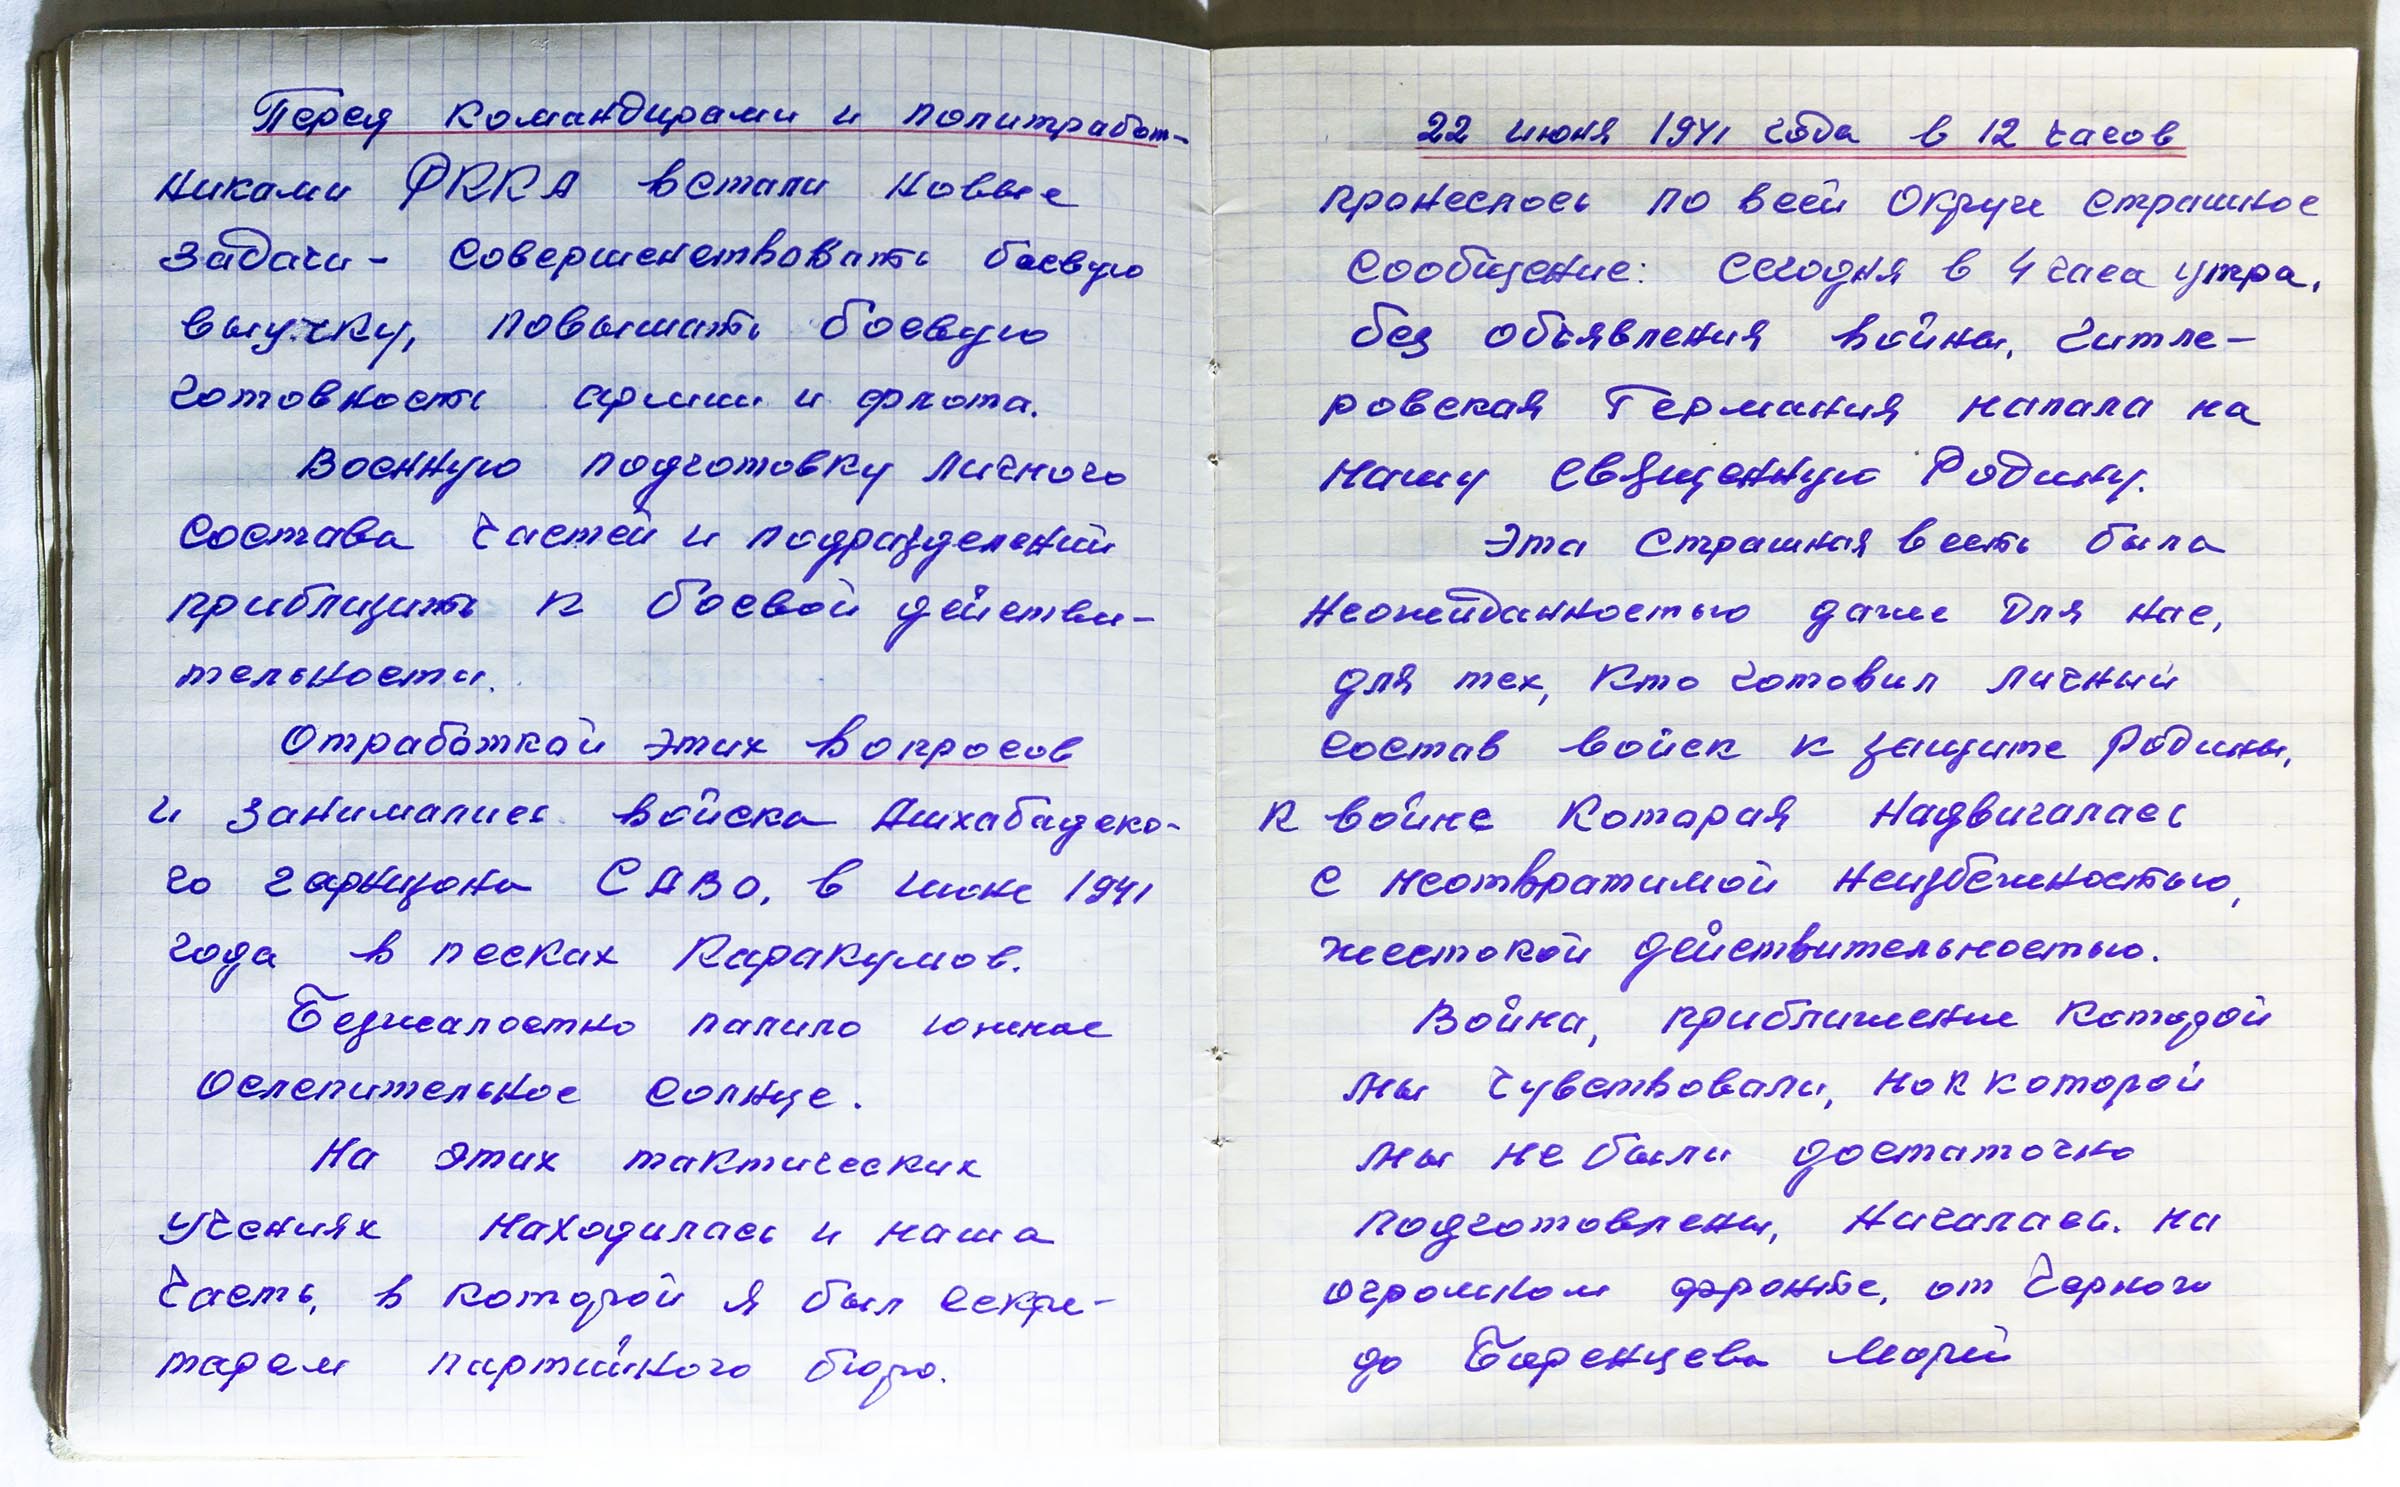 Перед командирами и политработ-
никами РККА встали новые
задачи - совершенствовать боевую
выучку, повышать боевую
готовность армии и флота.
Военную подготовку личного
состава частей и подразделений
приблизить к боевой действи-
тельности.
Отработкой этих вопросов
и занимались войска Ашхабадско-
го гарнизона САВО, в июне 1941
года в песках Каракумов.
Безжалостно палило южное
ослепительное солнце.
На этих тактических
учениях находилась и наша
часть, в которой я был секре-
тарем партийного бюро.
22 июня 1941 года в 12 часов
пронеслось по всей округе страшное
сообщение: сегодня в 4 часа утра,
без объявления войны, гитле-
ровская Германия напала на
нашу священную Родину.
Эта страшная весть была
неожиданностью даже для нас,
для тех, кто готовил личный
состав войск к защите Родины,
к войне которая надвигалась
с неотвратимой неизбежностью,
жестокой действительностью.
Война, приближение которой
мы чувствовали, но к которой
мы не были достаточно
подготовлены, началась. на
огромном фронте, от Черного
до Баренцева морей